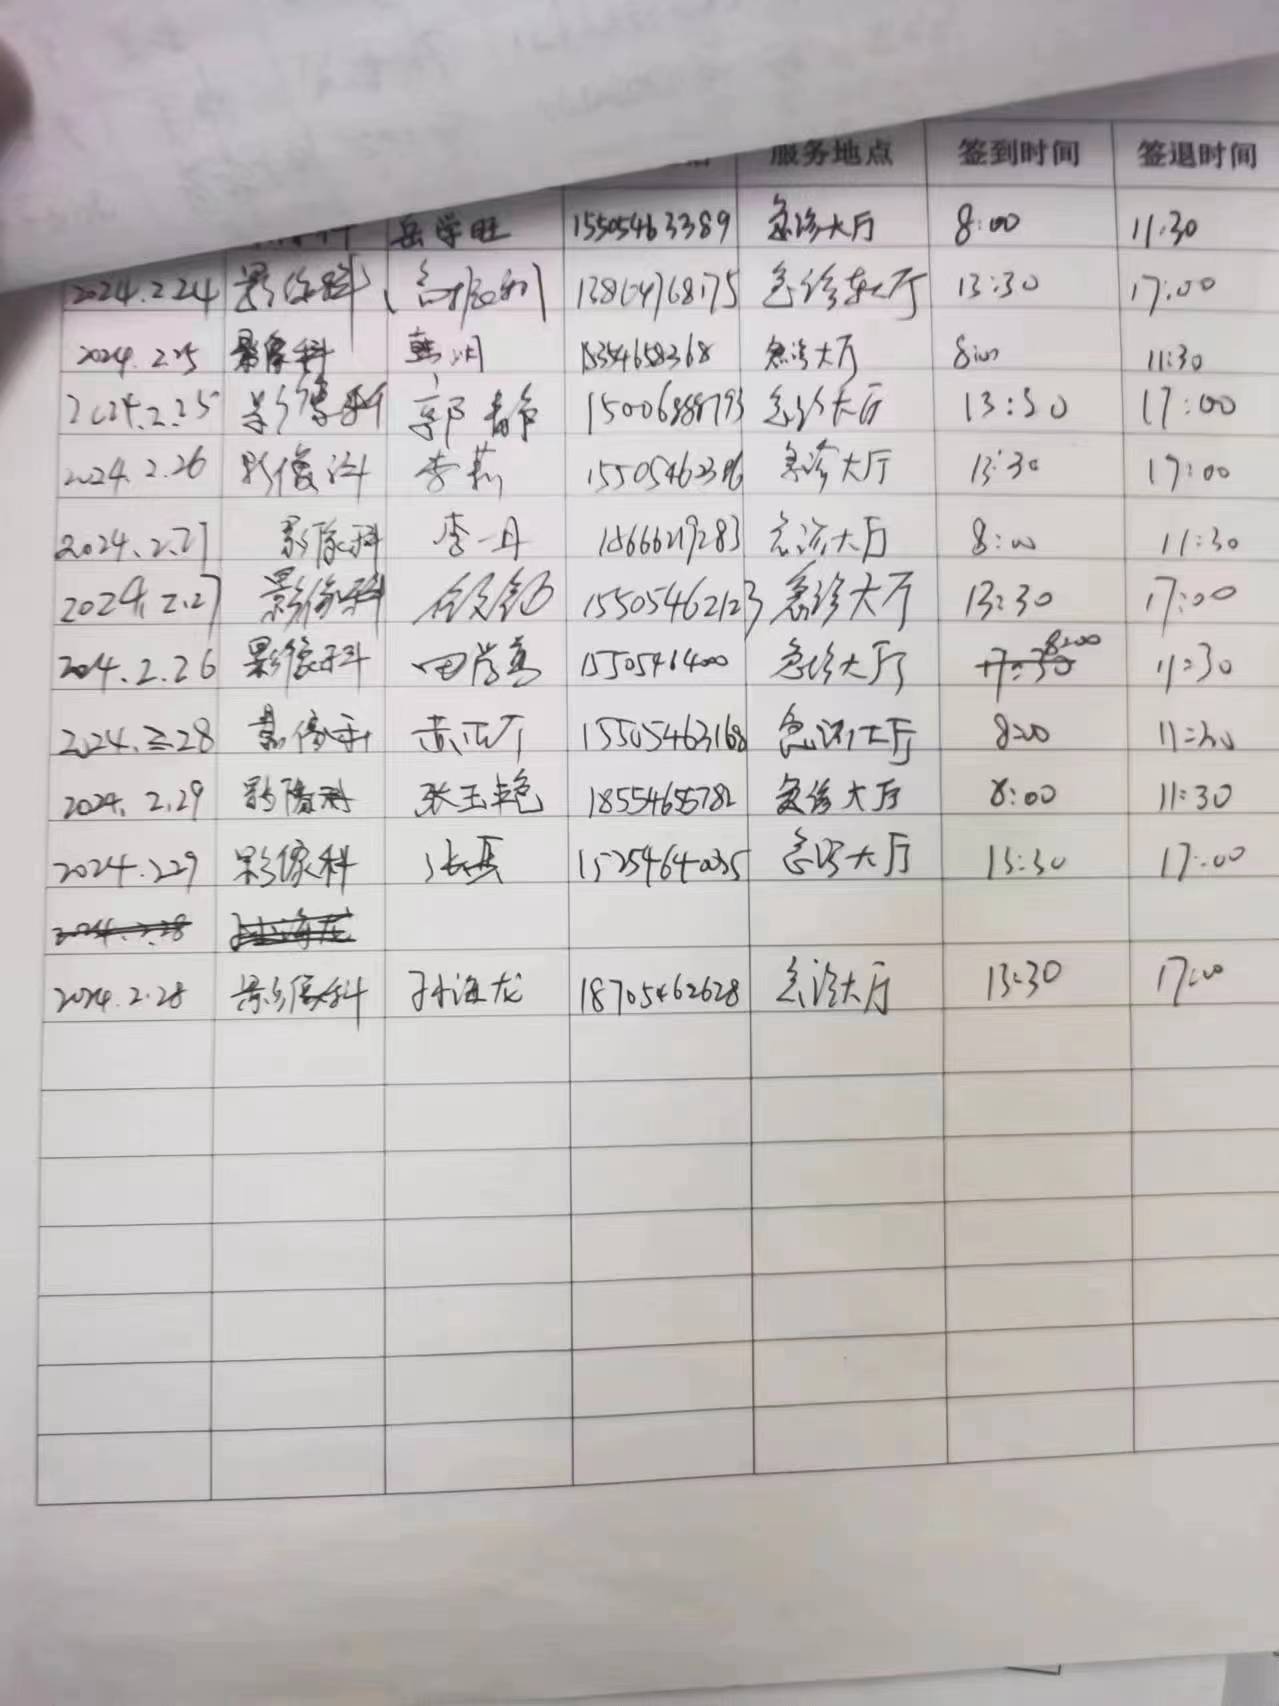 服务地点 签到时间 签退时间
岳学旺 15505463389 急诊大厅 8:00 11:30
2024.2.24 影像科 急诊大厅 13:30 17:00
2024.2.25 影像科 急诊大厅 11:30
2024.2.25 影像科 郭静 急诊大厅 13:30 17:00
2024.2.26 影像科 李莉 急诊大厅 13:30 17:00
2024.2.27 影像科 李一丹 18666219283 急诊大厅 8:00 11:30
2024.2.27 影像科 15505462123 急诊大厅 13:30 17:00
影像科 急诊大厅 8:00 11:30
影像科 15505463168 急诊大厅 11:30
2024.2.29 影像科 张玉艳 18554655782 急诊大厅 8:00 11:30
影像科 急诊大厅 13:30 17:00
2024.2.28 孙海龙
2024.2.28 影像科 孙海龙 18705462628 急诊大厅 13:30 17:00